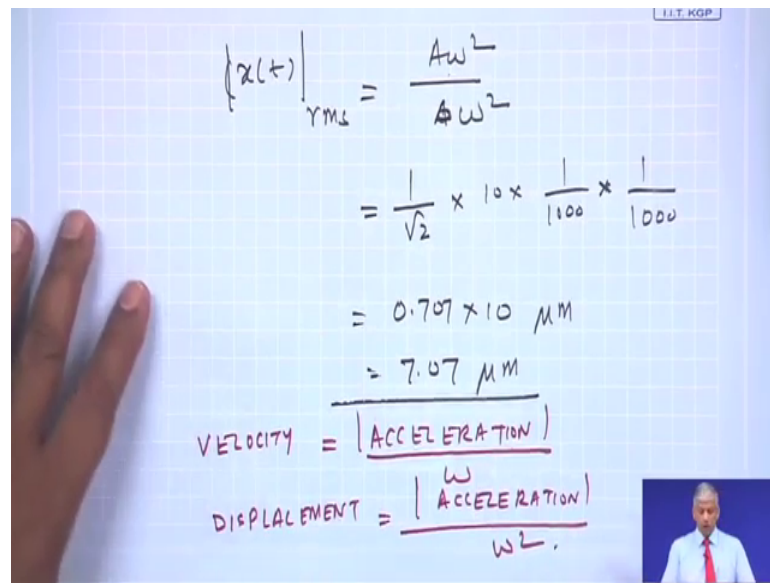 I.I.T. KGP
|x(t)|rms = Aω² / ω²
= 1/√2 × 10 × 1/1000 × 1/1000
= 0.707 × 10 μm
= 7.07 μm
VELOCITY = |ACCELERATION| / ω
DISPLACEMENT = |ACCELERATION| / ω².